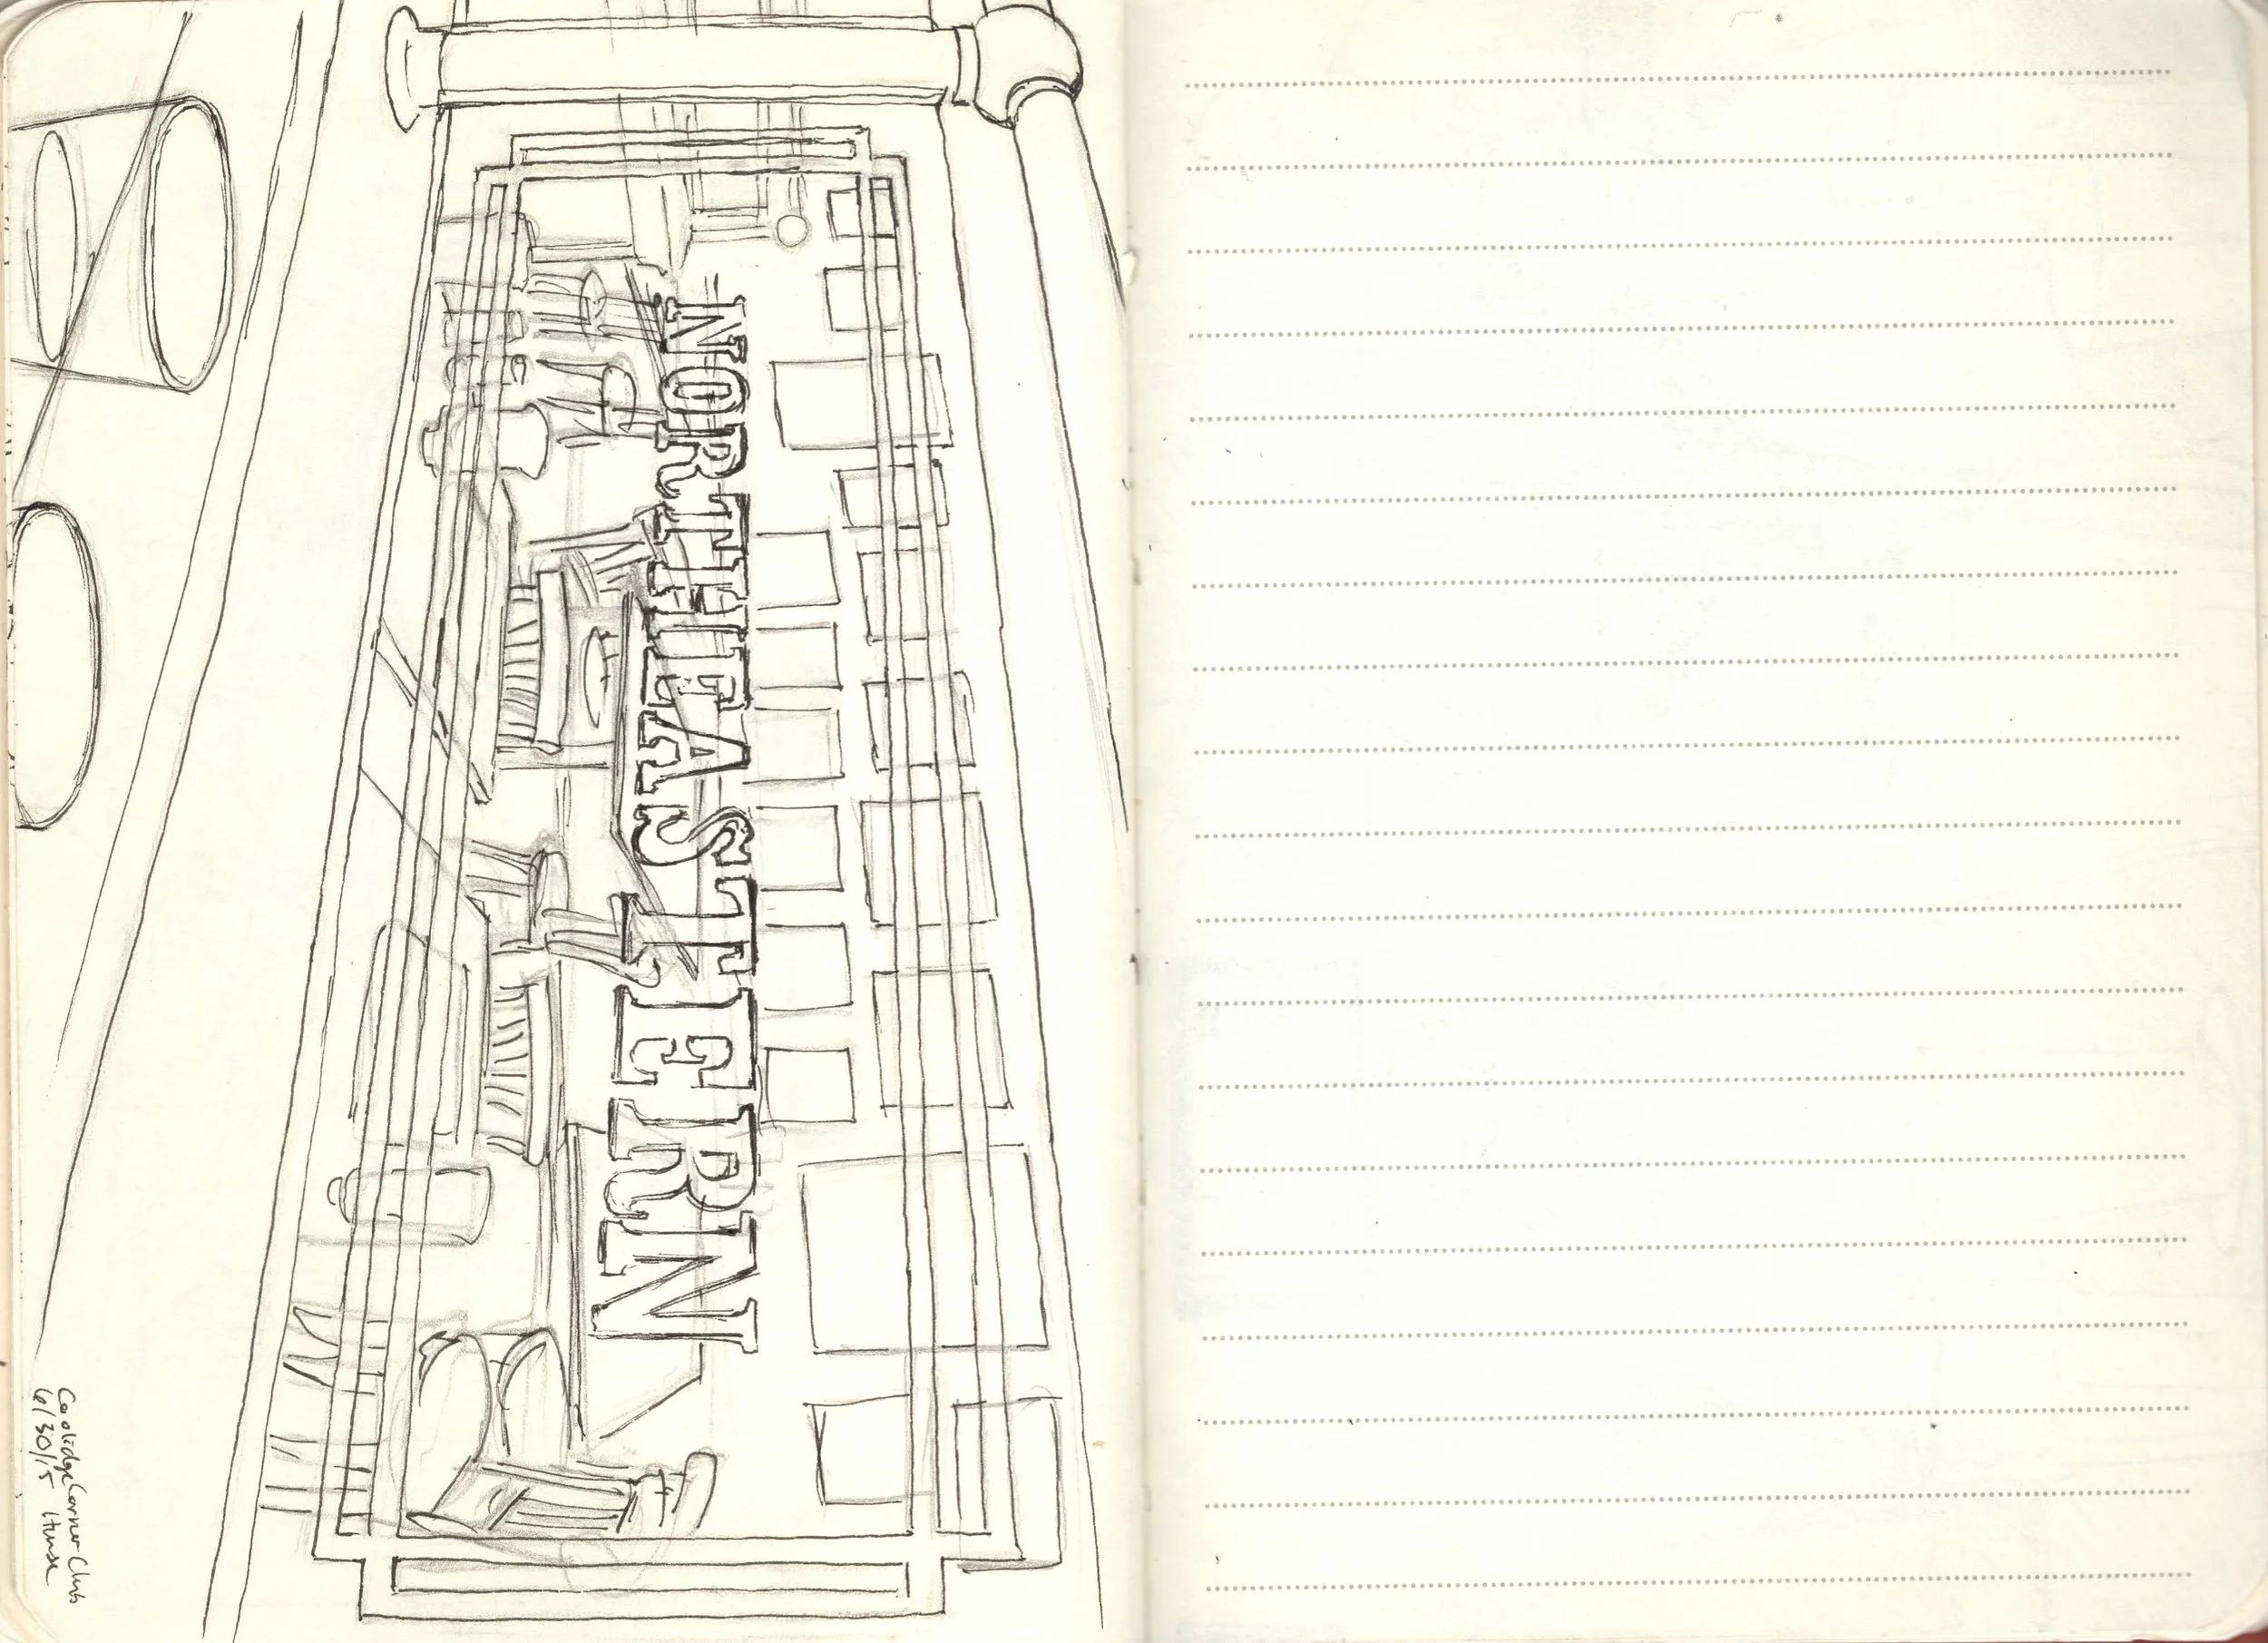 NORTHEASTERN
Coolidge Corner Club
6/30/15 House